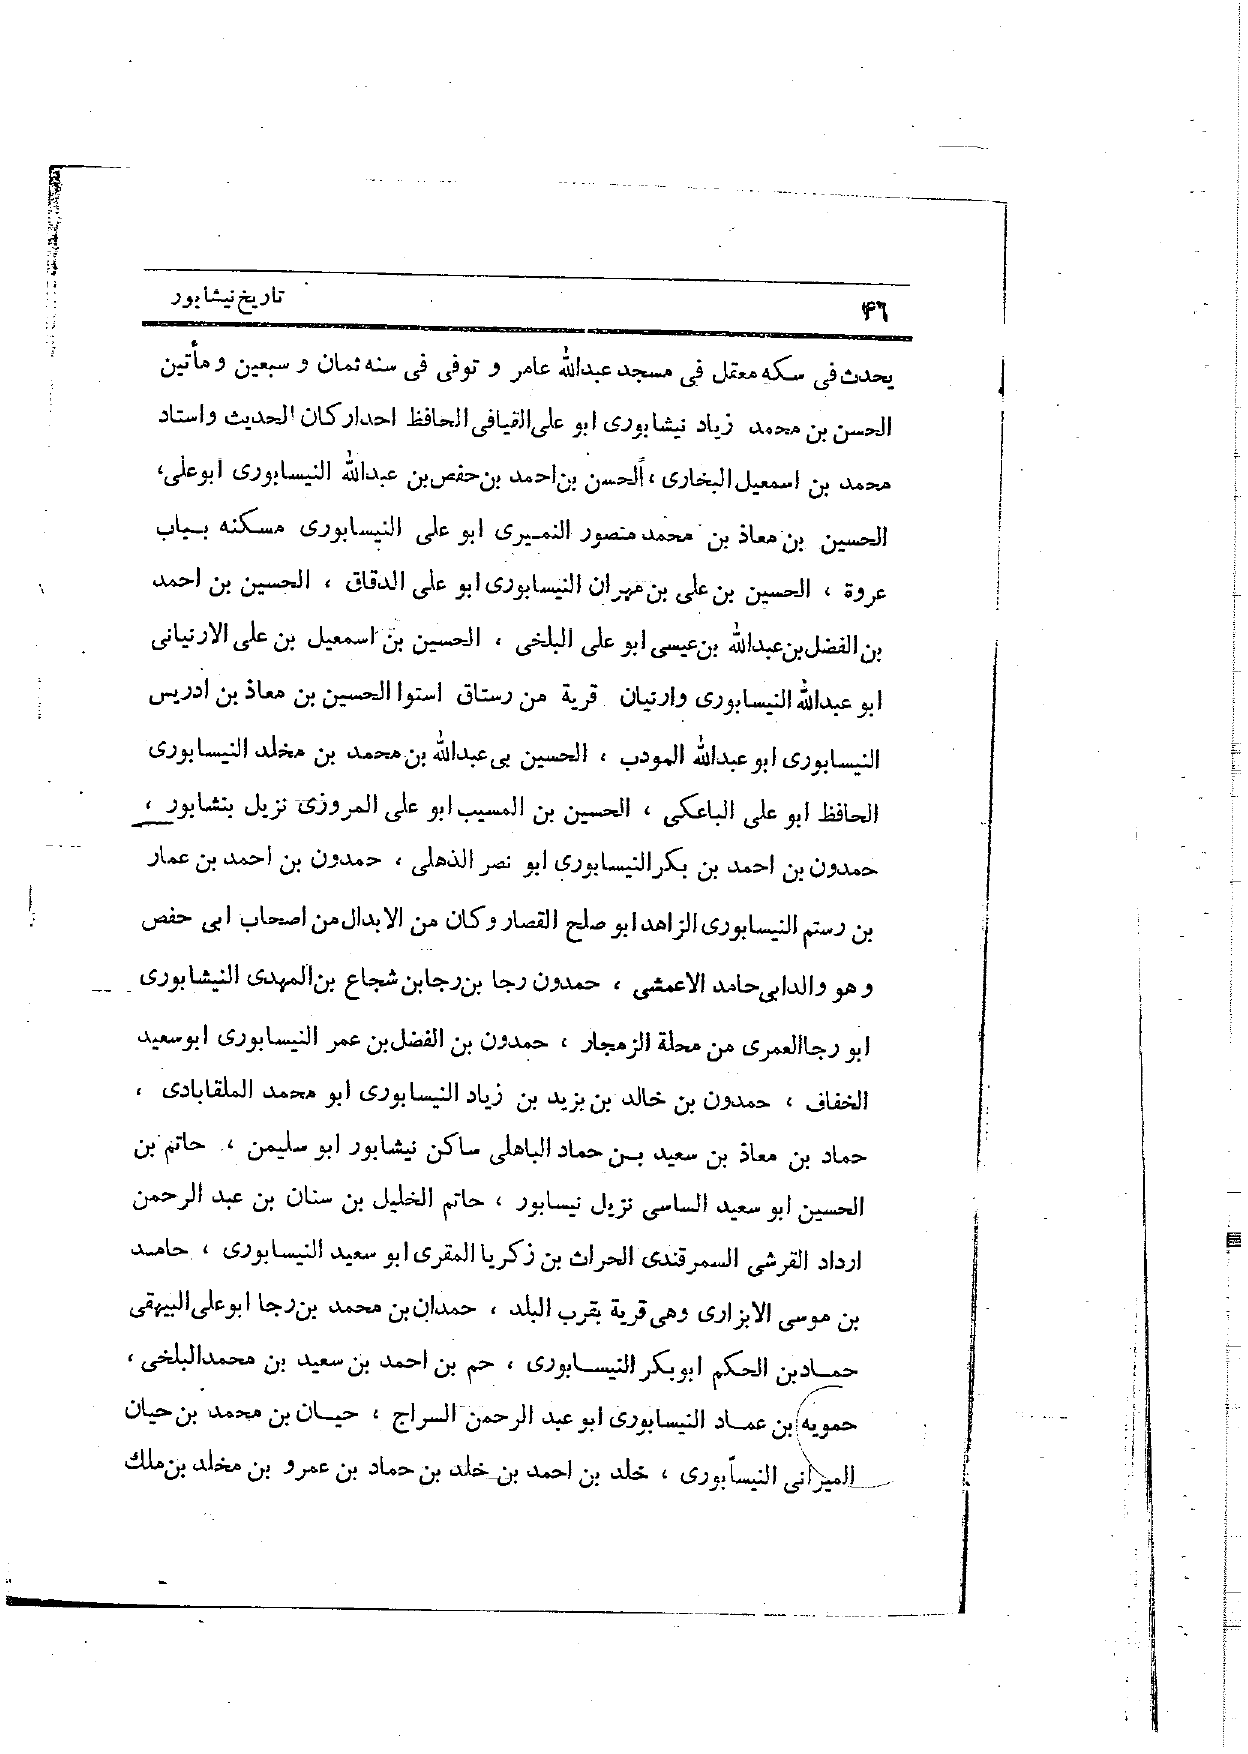 ۴۶
تاریخ نیشابور
یحدث فی سکه معقل فی مسجد عبدالله عامر و توفی فی سنه ثمان و سبعین و مأتین
الحسن بن محمد زیاد نیشابوری ابو علی القبافی الحافظ احد ارکان الحدیث و استاد
محمد بن اسمعیل البخاری ، ألحسن بن احمد بن حفص بن عبدالله النیسابوری ابوعلی ،
الحسین بن معاذ بن محمد منصور النمیری ابو علی النیسابوری مسکنه بباب
عروة ، الحسین بن علی بن مهران النیسابوری ابو علی الدقاق ، الحسین بن احمد
بن الفضل بن عبدالله بن عیسی ابو علی البلخی ، الحسین بن اسمعیل بن علی الارنیانی
ابو عبدالله النیسابوری وارنیان قریة من رستاق استوا الحسین بن معاذ بن ادریس
النیسابوری ابو عبدالله المودب ، الحسین بی عبدالله بن محمد بن مخلد النیسابوری
الحافظ ابو علی الباعکی ، الحسین بن المسیب ابو علی المروزی نزیل بنشابور ،
حمدون بن احمد بن بکر النیسابوری ابو نصر الذهلی ، حمدون بن احمد بن عمار
بن رستم النیسابوری الزاهد ابو صلح القصار و کان من الابدال من اصحاب ابی حفص
و هو والد ابی حامد الاعمشی ، حمدون رجا بن رجا بن شجاع بن المهدی النیشابوری
ابو رجا العمری من محلة الزمجار ، حمدون بن الفضل بن عمر النیسابوری ابو سعید
الخفاف ، حمدون بن خالد بن یزید بن زیاد النیسابوری ابو محمد الملقابادی ،
حماد بن معاذ بن سعید بن حماد الباهلی ساکن نیشابور ابو سلیمن ، حاتم بن
الحسین ابو سعید الساسی نزیل نیسابور ، حاتم الخلیل بن سنان بن عبد الرحمن
ارداد القرشی السمرقندی الحراث بن زکریا المقری ابو سعید النیسابوری ، حامد
بن موسی الابزاری وهی قریة بقرب البلد ، حمدان بن محمد بن رجا ابوعلی البیهقی
حماد بن الحکم ابوبکر النیسابوری ، حم بن احمد بن سعید بن محمد البلخی ،
حمویه بن عماد النیسابوری ابو عبد الرحمن السراج ، حیان بن محمد بن حیان
المیرانی النیسآبوری ، خلد بن احمد بن خلد بن حماد بن عمرو بن مخلد بن ملك